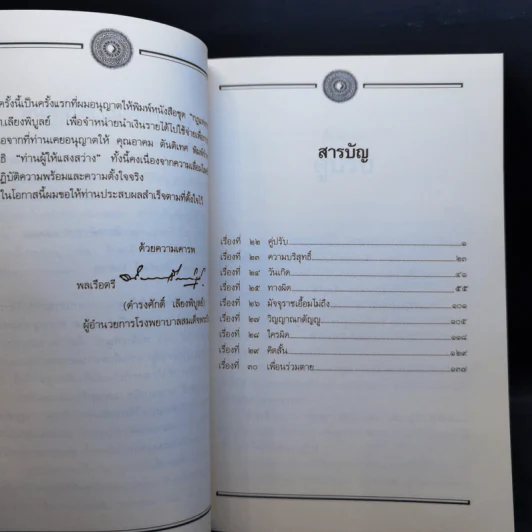 ครั้งนี้เป็นครั้งแรกที่ผมอนุญาตให้พิมพ์หนังสือชุด
ท.เลียงพิบูลย์ เพื่อจำหน่ายนำเงินรายได้ไปใช้จ่าย
จากที่ท่านเคยอนุญาตให้ คุณอาคม ตันติเทศ
"ท่านผู้ให้แสงสว่าง" ทั้งนี้คงเนื่องจากความ
ปฏิบัติความพร้อมและความตั้งใจจริง
ในโอกาสนี้ผมขอให้ท่านประสบผลสำเร็จตามที่ตั้งใจไว้
ด้วยความเคารพ
พลเรือตรี
(ดำรงศักดิ์ เลียงพิบูลย์)
ผู้อำนวยการโรงพยาบาลสมเด็จ
สารบัญ
เรื่องที่ ๒๒ คู่ปรับ ๑
เรื่องที่ ๒๓ ความบริสุทธิ์ ๒๓
เรื่องที่ ๒๔ วันเกิด ๔๑
เรื่องที่ ๒๕ ทางผิด ๕๕
เรื่องที่ ๒๖ มัจจุราชเอื้อมไม่ถึง ๑๐๑
เรื่องที่ ๒๗ วิญญาณกตัญญู ๑๐๕
เรื่องที่ ๒๘ ใครผิด ๑๑๘
เรื่องที่ ๒๙ คิดสั้น ๑๒๙
เรื่องที่ ๓๐ เพื่อนร่วมตาย ๑๓๗